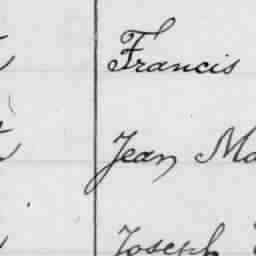 Francis
Jean
Joseph